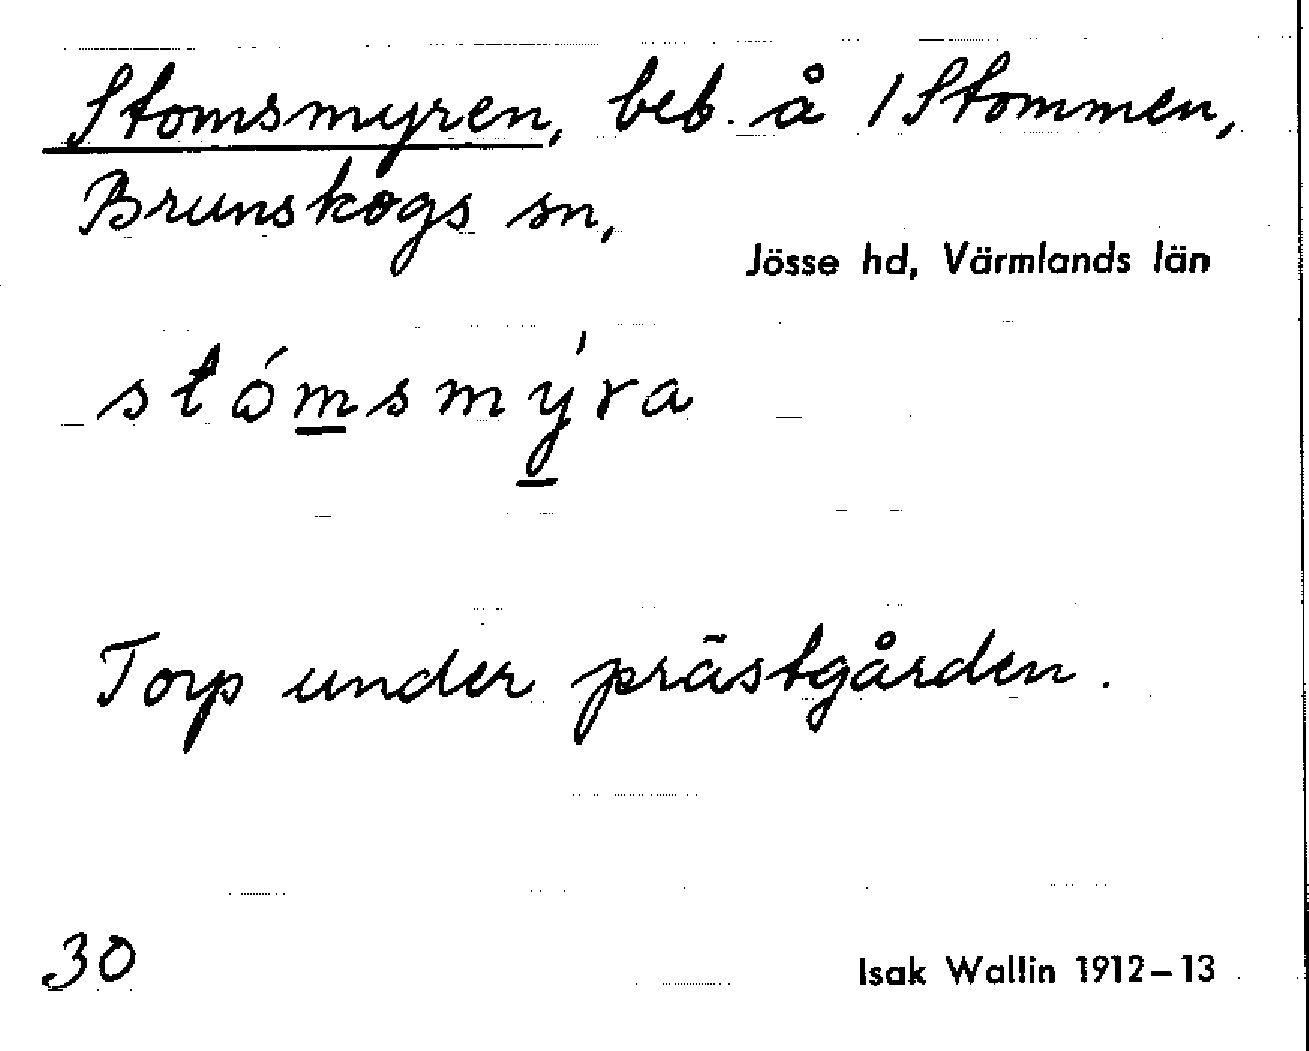 Stomsmyren, beb. å 1 Stommen,
Brunskogs sn,
Jösse hd, Värmlands län
stómsmýra
Torp under prästgården.
30
Isak Wallin 1912–13